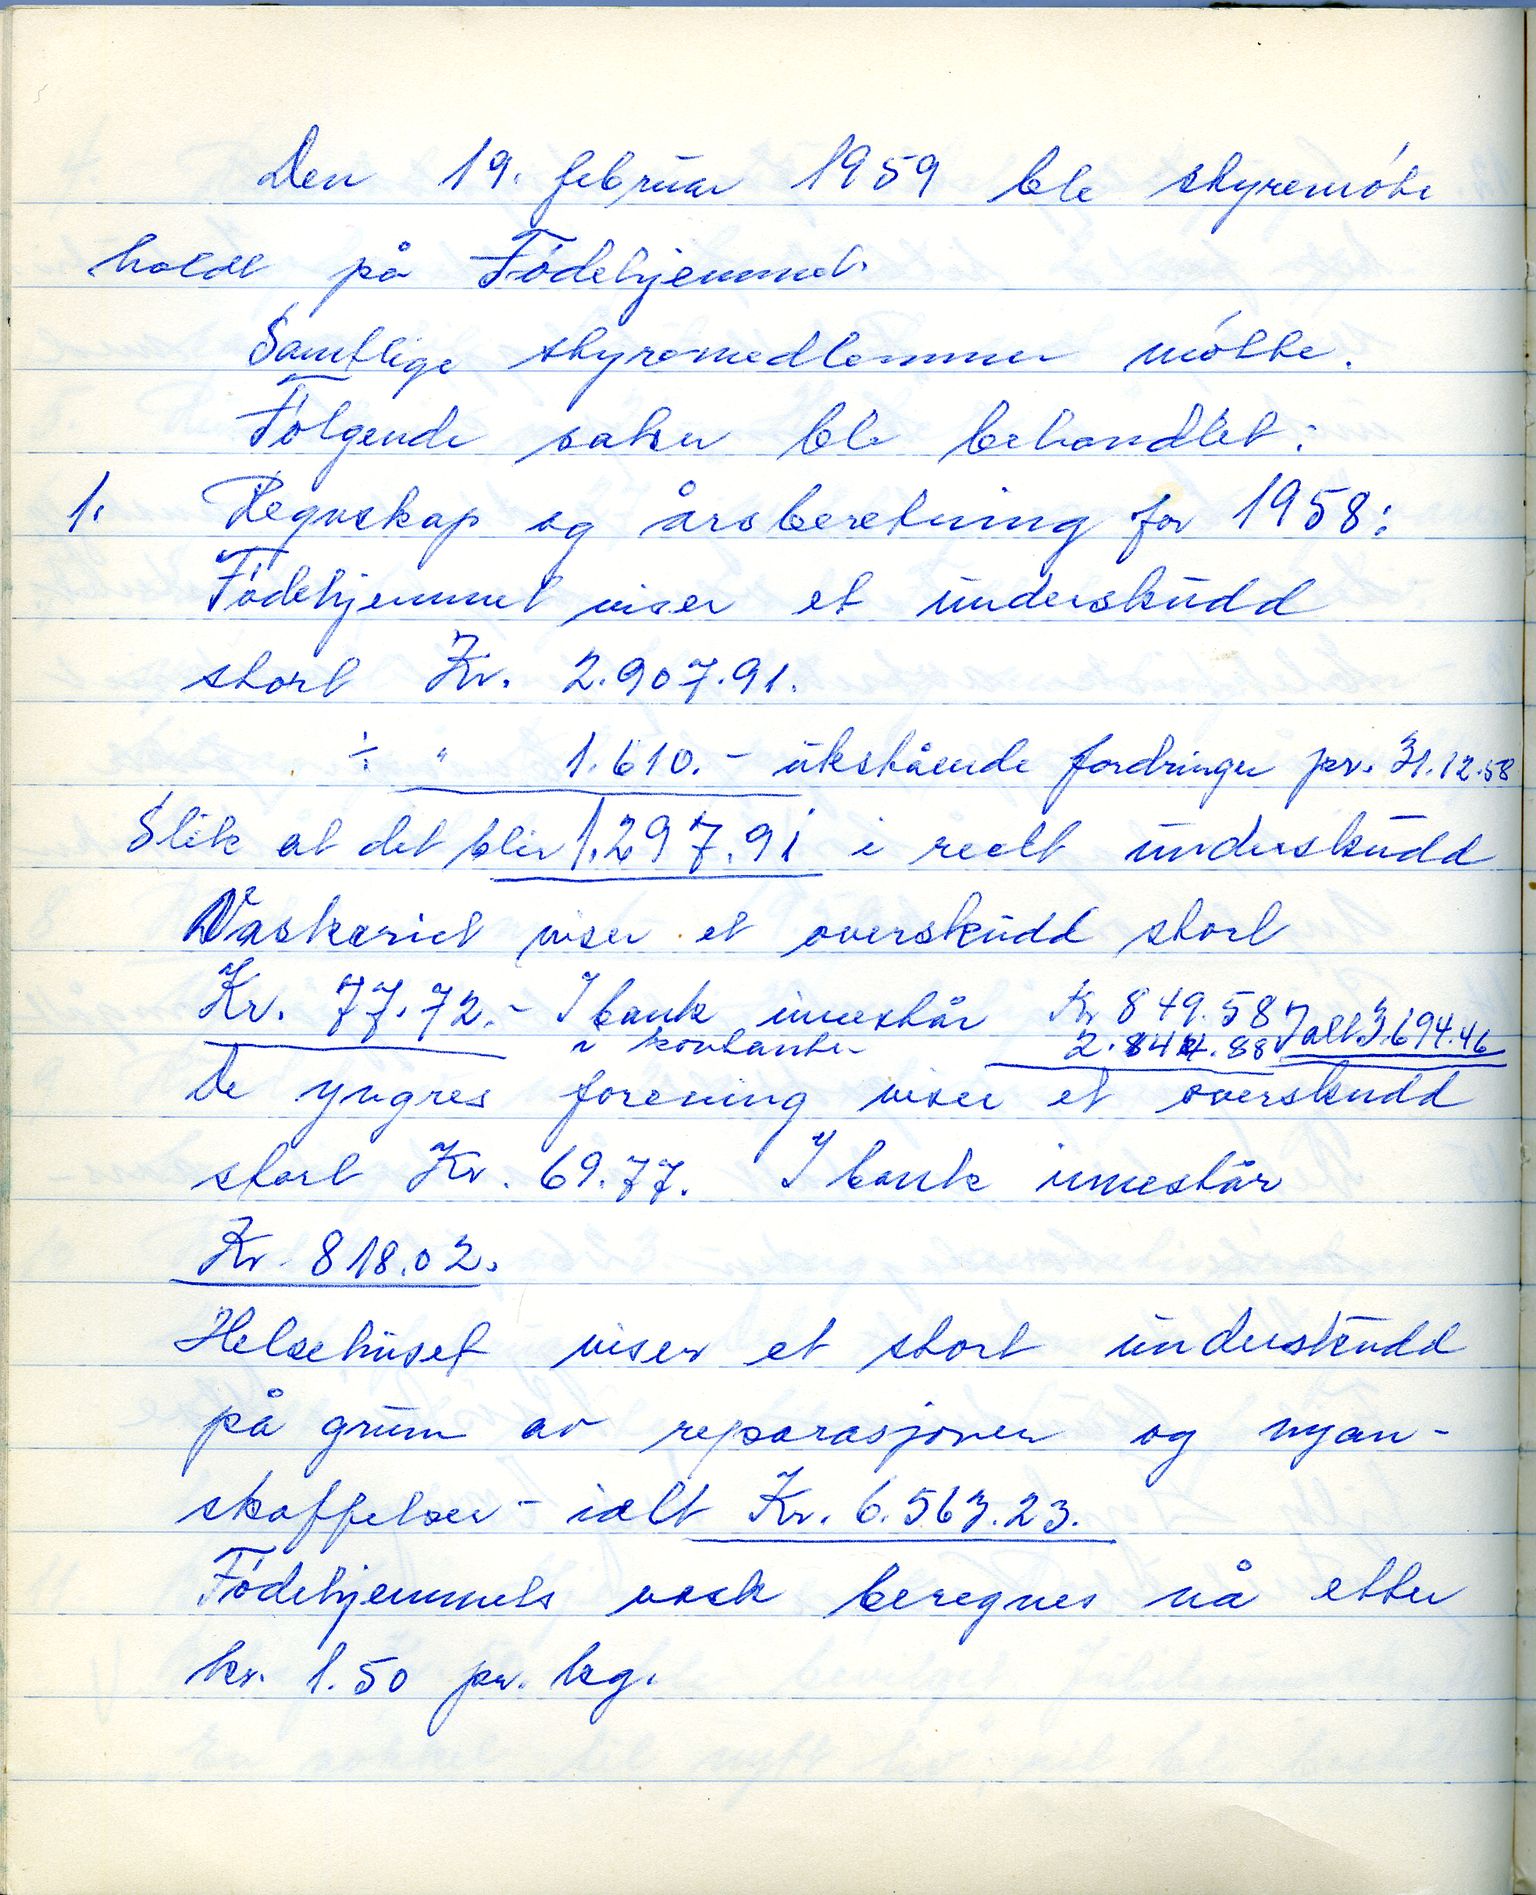 Den 19. februar 1959 ble styremøte
holdt på Fødehjemmet.
Samtlige styremedlemmer møtte.
Følgende saker ble behandlet:
1. Regnskap og årsberetning for 1958:
Fødehjemmet viser et underskudd
stort Kr. 2.907.91.
÷ " 1.610.- utestående fordringer pr. 31.12.58
Slik at det blir 1.297.91 i reelt underskudd
Vaskeriet viser et overskudd stort
Kr. 77.72.- I bank innestår Kr 849.58
i kontanter 2.844.88 Ialt 3.694.46
De yngres forening viser et overskudd
stort Kr. 69.77. I bank innestår
Kr. 818.02.
Helsehuset viser et stort underskudd
på grunn av reparasjoner og nyan-
skaffelser - ialt Kr. 6.563.23.
Fødehjemmets vask beregnes nå etter
kr. 1.50 pr. kg.